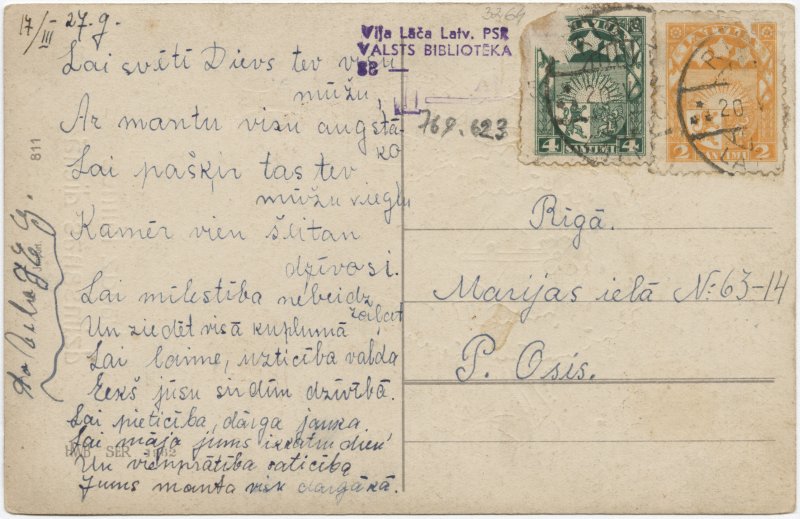 17/III 27.g.
Lai svētī Dievs tev visu
mūžu,
Ar mantu visu augstā-
ko
Lai pašķir tas tev
mūžu vieglu
Kamēr vien šeitan
dzīvosi.
Lai mīlestība nebeidz
zaļot
Un ziedēt visā kuplumā
Lai laime, uzticība valda
Iekš jūsu sirdīm dzīvībā.
Lai pieticība, dārga jauka
Lai māja jums ikkatru dien'
Un vienprātība saticība
Jums manta visk dārgākā.
811
HWB SER 1162
33,64
Viļa Lāča Latv. PSR
VALSTS BIBLIOTEKA
88 —
769.623
LATVIJA
4 LATVIJA 4
LATVIJA
2 LATVIJA 2
20
Rīgā.
Marijas ielā № 63-14
P. Osis.